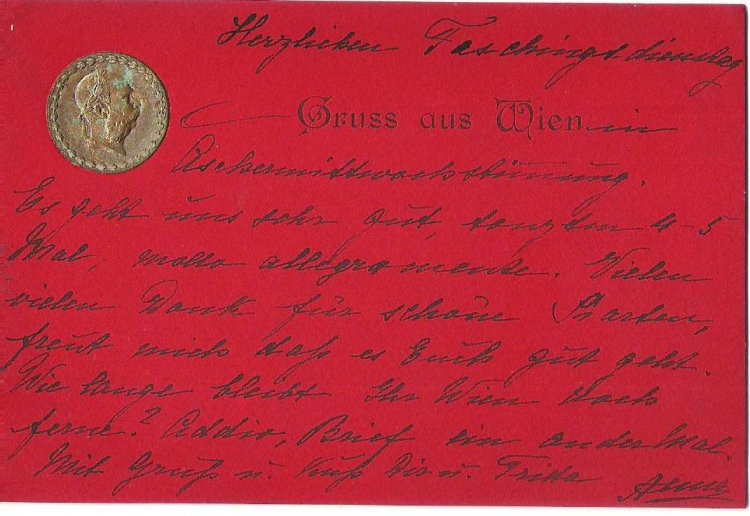 Herzlichen Faschingsdienstag
Gruss aus Wien in
Aschermittwochstimmung.
Es geht uns sehr gut, tanzten 4-5
Mal, molto allegramente. Vielen
vielen Dank für schöne Karten,
freut mich daß es Euch gut geht.
Wie lange bleibt Ihr Wien doch
ferne? Addio, Brief ein ander Mal.
Mit Gruß u. Kuß Dir u. Frida
Anna